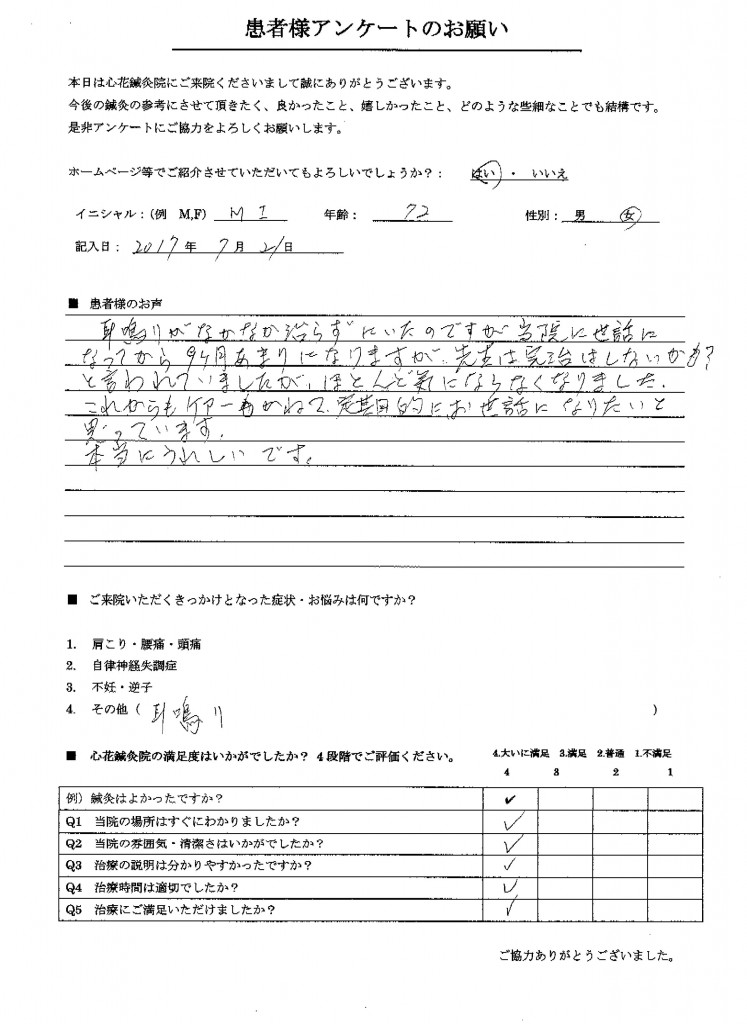 患者様アンケートのお願い
本日は心花鍼灸院にご来院くださいまして誠にありがとうございます。
今後の鍼灸の参考にさせて頂きたく、良かったこと、嬉しかったこと、どのような些細なことでも結構です。
是非アンケートにご協力をよろしくお願いします。
ホームページ等でご紹介させていただいてもよろしいでしょうか？： はい ・ いいえ
イニシャル：（例 M,F） M I 年齢： 72 性別： 男 女
記入日： 2017 年 7 月 21 日
■ 患者様のお声
耳鳴りがなかなか治らずにいたのですが当院に世話に
なってから9ヶ月あまりになりますが、先生は完治はしないかも?
と言われていましたが、ほとんど気にならなくなりました.
これからもケアーもかねて、定期的にお世話になりたいと
思っています.
本当にうれしいです。
■ ご来院いただくきっかけとなった症状・お悩みは何ですか？
1. 肩こり・腰痛・頭痛
2. 自律神経失調症
3. 不妊・逆子
4. その他（ 耳鳴り ）
■ 心花鍼灸院の満足度はいかがでしたか？ 4段階でご評価ください。 4.大いに満足 3.満足 2.普通 1.不満足
4 3 2 1
例）鍼灸はよかったですか？ ✓
Q1 当院の場所はすぐにわかりましたか？ ✓
Q2 当院の雰囲気・清潔さはいかがでしたか？ ✓
Q3 治療の説明は分かりやすかったですか？ ✓
Q4 治療時間は適切でしたか？ ✓
Q5 治療にご満足いただけましたか？ ✓
ご協力ありがとうございました。